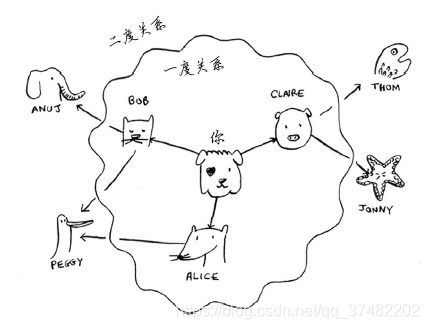 二度关系
一度关系
ANUJ
BOB
CLAIRE
THOM
你
JONNY
PEGGY
ALICE
https://blog.csdn.net/qq_37482202